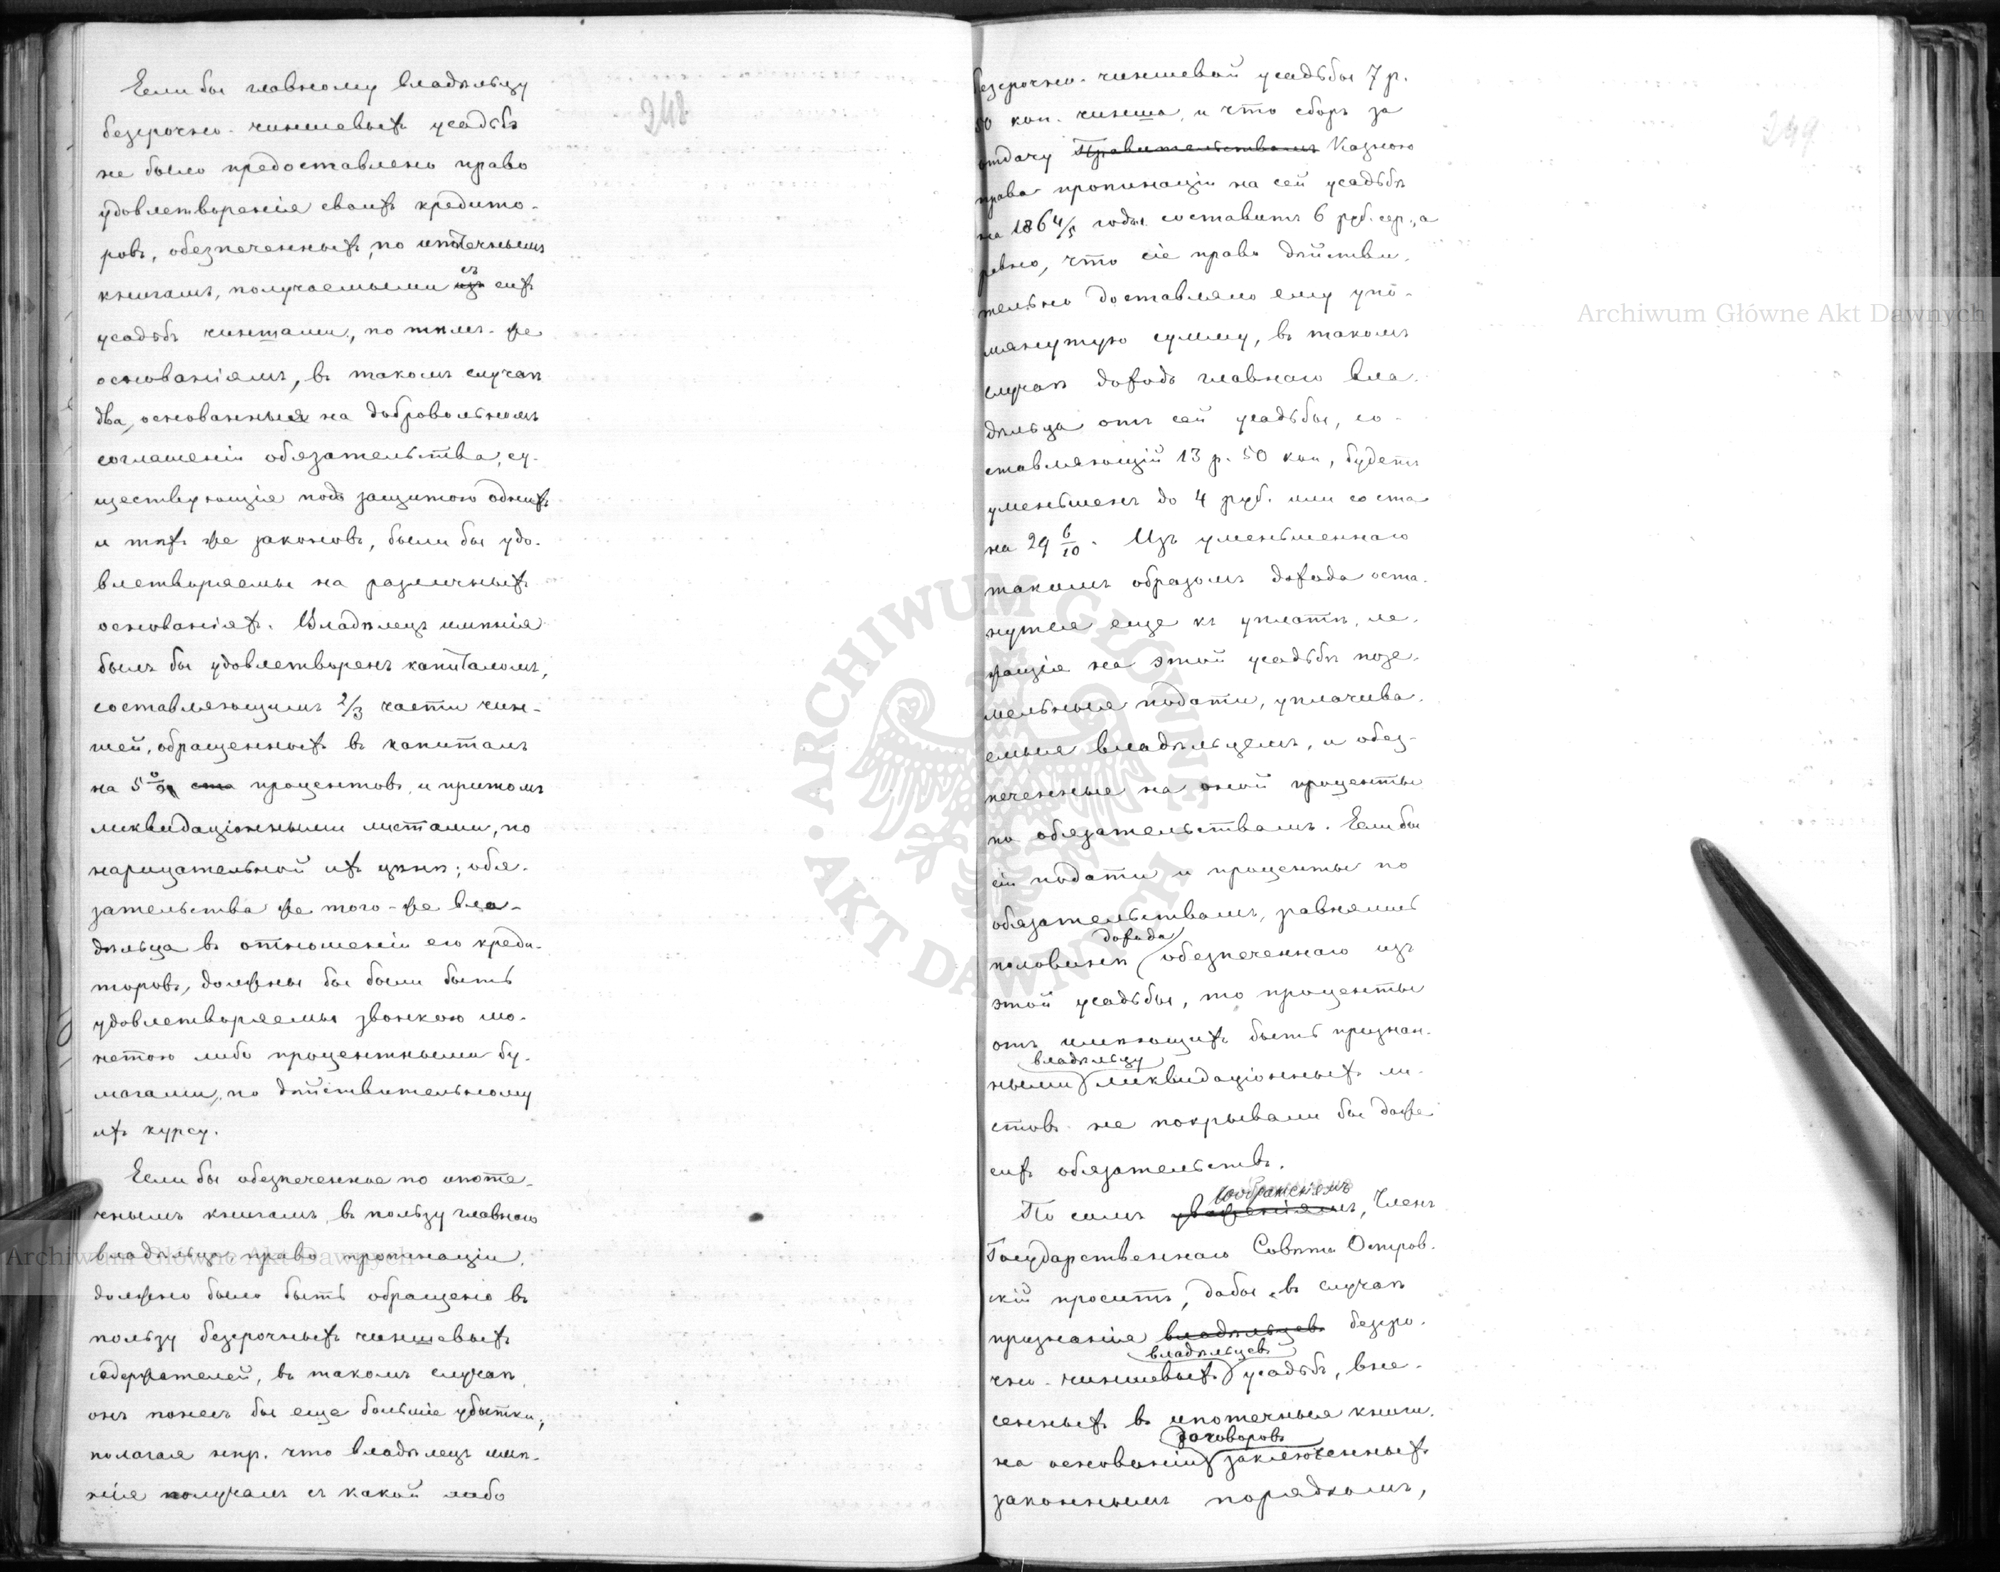 248
Если бы главному владѣльцу
безсрочно-чиншевыхъ усадьбъ
не было предоставлено право
удовлетворенія своихъ кредито-
ровъ, обезпеченныхъ, по ипотечнымъ
книгамъ, получаемыми изъ съ сихъ
усадьбъ чиншами, по тѣмъ-же
основаніямъ, въ такомъ случаѣ
два, основанныя на добровольномъ
соглашеніи обязательства, су-
ществующія подъ защитою однихъ
и тѣхъ же законовъ, были бы удо-
влетворяемы на различныхъ
основаніяхъ. Владѣлецъ имѣнія
былъ бы удовлетворенъ капиталомъ,
составляющимъ 2/3 части чин-
шей, обращенныхъ въ капиталъ
на 5% ста процентовъ, и притомъ
ликвидаціонными листами, по
нарицательной ихъ цѣнѣ; обя-
зательства же того-же вла-
дѣльца въ отношеніи его креди-
торовъ, должны бы были быть
удовлетворяемы звонкою мо-
нетою либо процентными бу-
магами, по дѣйствительному
ихъ курсу.
Если бы обезпеченное по ипоте-
чнымъ книгамъ, въ пользу главнаго
владѣльца, право пропинаціи,
должно было быть обращено въ
пользу безсрочныхъ чиншевыхъ
содержателей, въ такомъ случаѣ,
онъ понесъ бы еще большіе убытки;
полагая нпр. что владѣлецъ имѣ-
нія получалъ съ какой либо
249
безсрочно-чиншевой усадьбы 7 р.
50 коп. чинша, и что сборъ за
отдачу Правительствомъ Казною
права пропинаціи на сей усадьбѣ
на 1864/5 годы составитъ 6 руб. сер., а
равно, что сіе право дѣйстви-
тельно доставляло ему упо-
мянутую сумму, въ такомъ
случаѣ доходъ главнаго вла-
дѣльца отъ сей усадьбы, со-
ставляющій 13 р. 50 коп., будетъ
уменьшенъ до 4 руб. или со ста
на 29 6/10. Изъ уменьшеннаго
такимъ образомъ дохода оста-
нутся еще къ уплатѣ, ле-
жащія на этой усадьбѣ позе-
мельныя подати, уплачива-
емыя владѣльцемъ, и обез-
печенные на оной проценты
по обязательствамъ. Если бы
сіи подати и проценты по
обязательствамъ, равнялись
дохода
половинѣ обезпеченнаго изъ
этой усадьбы, то проценты
отъ имѣющихъ быть признан-
владѣльцу
ными ликвидаціонныхъ ли-
стовъ не покрывали бы даже
сихъ обязательствъ.
соображеніямъ
По симъ уваженіямъ, Членъ
Государственнаго Совѣта Остров-
скій проситъ, дабы въ случаѣ
признанія владѣльцевъ безсро-
владѣльцевъ
чно-чиншевыхъ усадьбъ, вне-
сенныхъ въ ипотечныя книги,
договоровъ
на основаніи заключенныхъ
законнымъ порядкомъ,
Archiwum Główne Akt Dawnych
Archiwum Główne Akt Dawnych
ARCHIWUM GŁÓWNE
AKT DAWNYCH